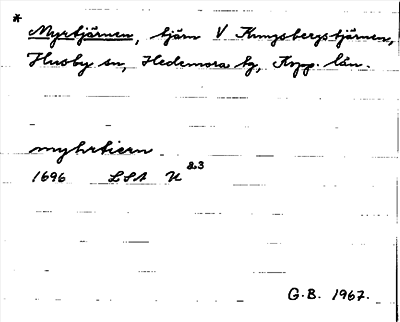 * Myrtjärnen, tjärn V Kungsbergstjärnen,
Husby sn, Hedemora tg, Kopp. län.
myhrtiern
1696 LSA U 8:3
G.B. 1967.